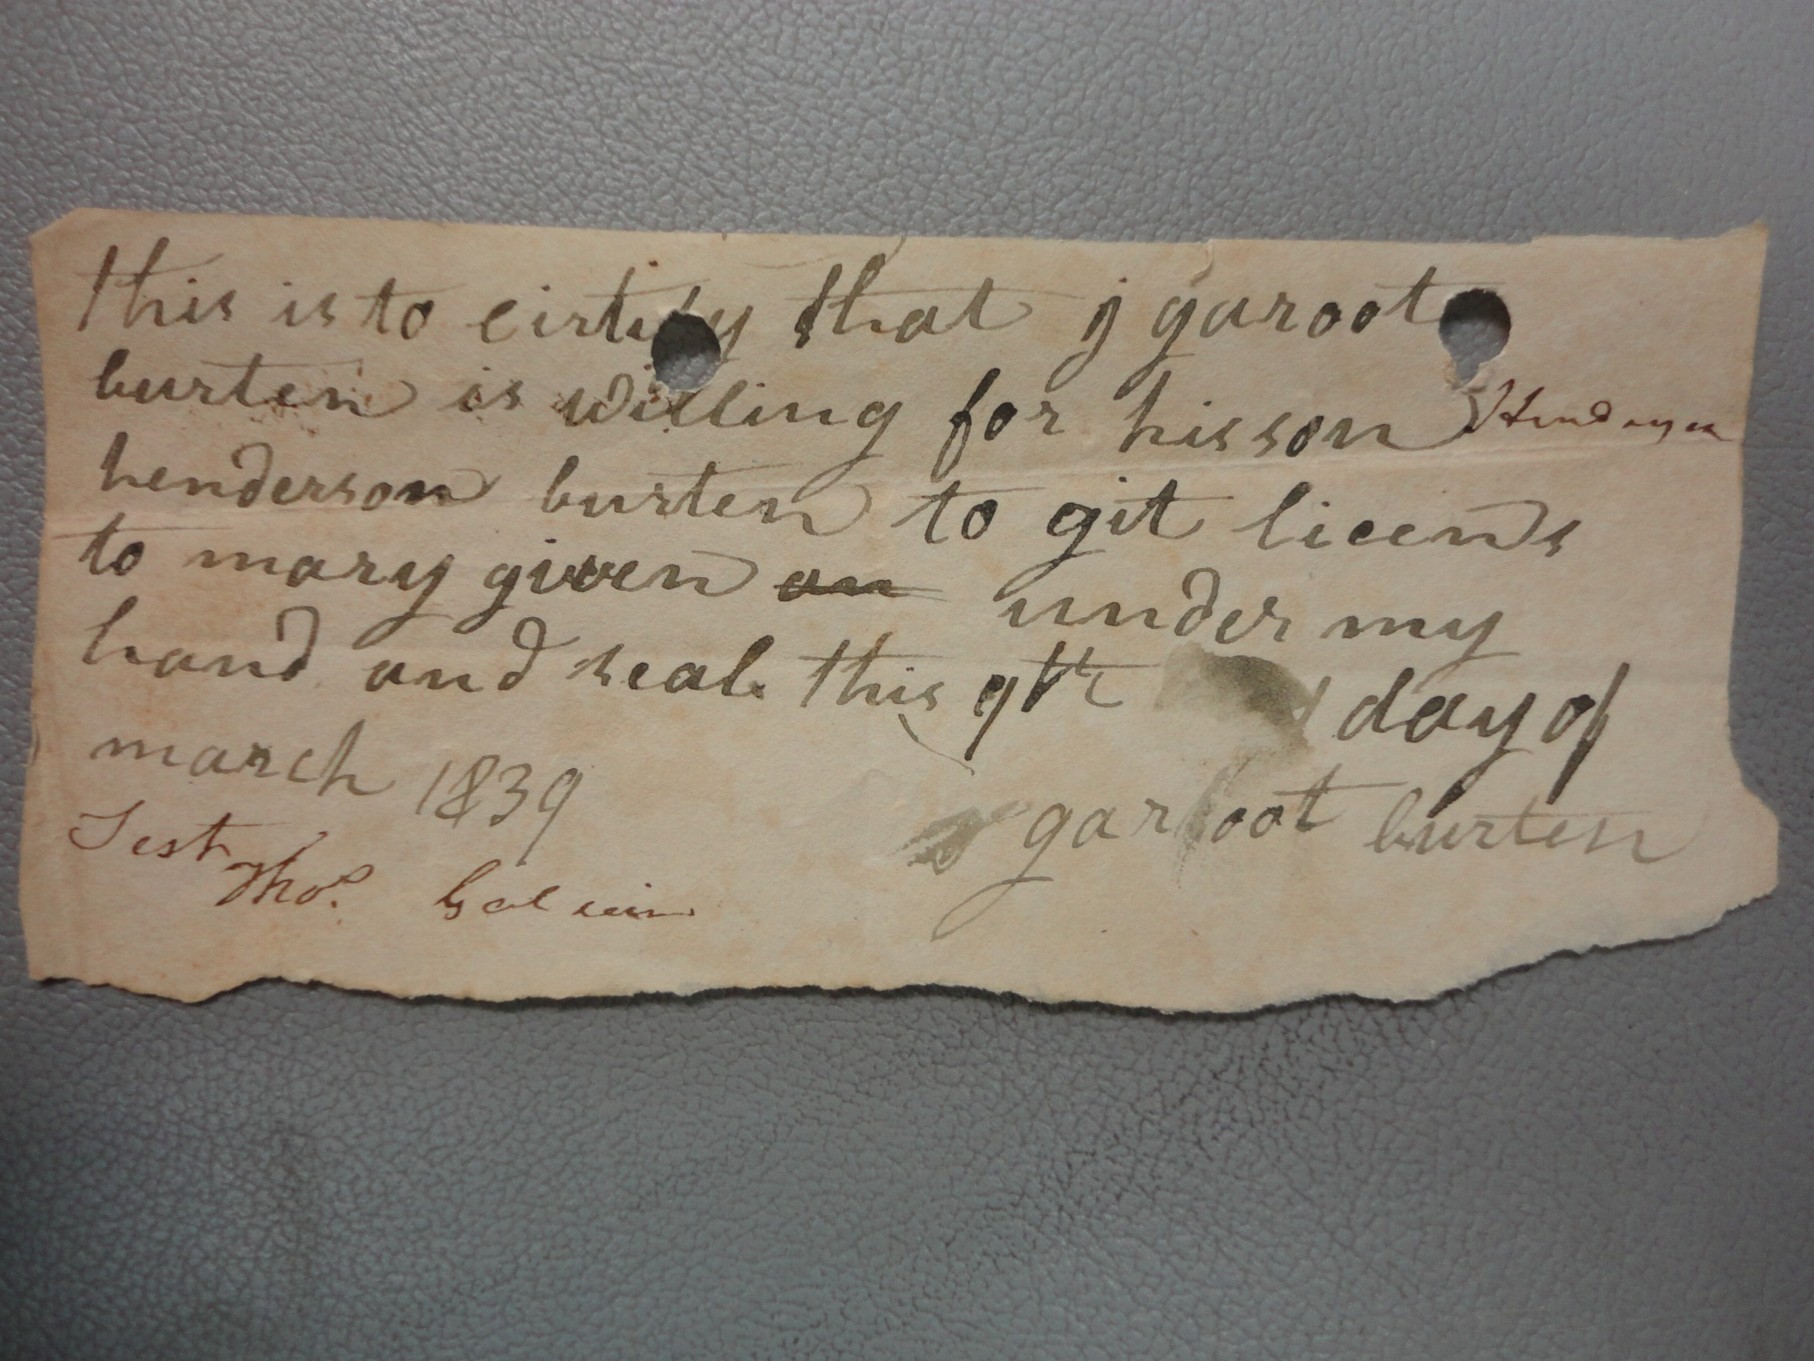 this is to cirtify that j garoot
burten is willing for his son
henderson burten to git licens
to mary given an under my
hand and seal this 9th day of
march 1839
garoot burten
Test
Thos.